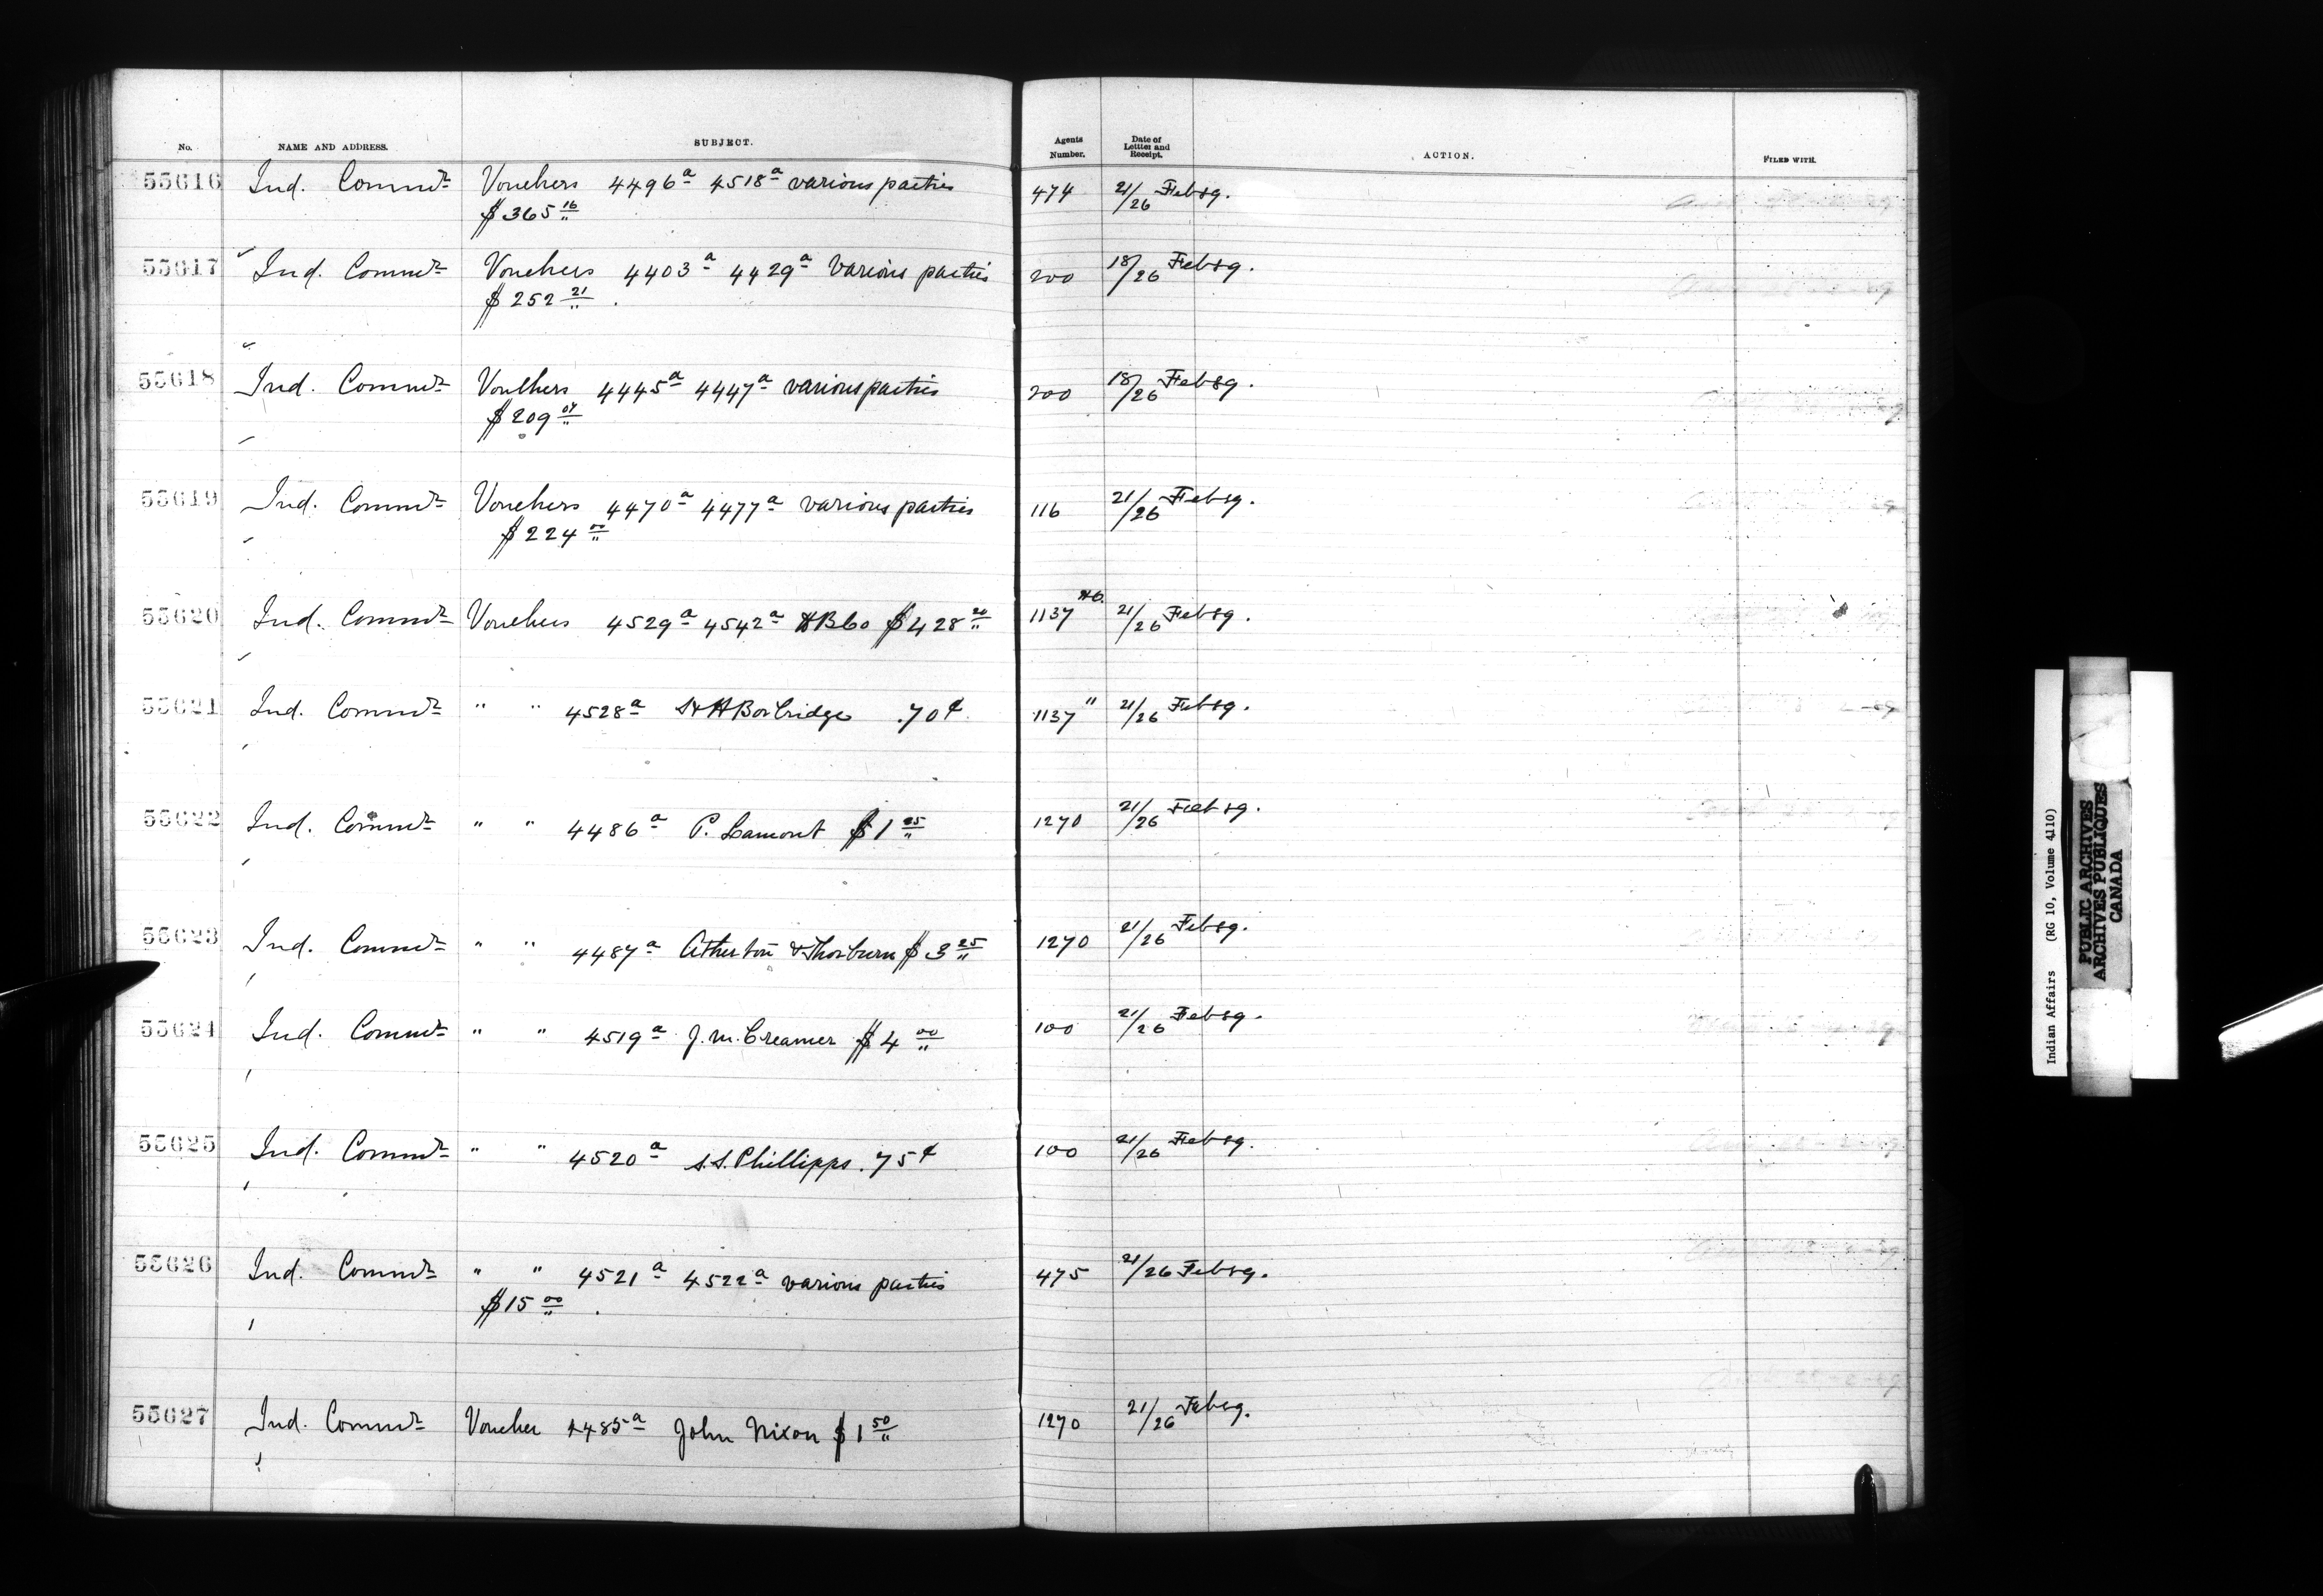 No. NAME AND ADDRESS. SUBJECT. Agents Number. Date of Letter and Receipt. ACTION. FILED WITH.
55616 Ind. Commr Vouchers 4496a 4518a various parties 474 21/26 Feb 89.
$365 16/"
55617 Ind. Commr Vouchers 4403a 4429a various parties 200 18/26 Feb 89.
$252 21/" .
55618 Ind. Commr Vouchers 4445a 4447a various parties 200 18/26 Feb 89.
$209 04/"
55619 Ind. Commr Vouchers 4470a 4477a various parties 116 21/26 Feb 89.
$224 00/"
55620 Ind. Commr Vouchers 4529a 4542a HBCo $428 20/" 1137 21/26 Feb 89.
55621 Ind. Commr " " 4528a S & H Borbridge .70¢ 1137 " 21/26 Feb 89.
55622 Ind. Commr " " 4486a P. Lamont $1 25/" 1270 21/26 Feb 89.
55623 Ind. Commr " " 4487a Atherton & Thorburn $3 25/" 1270 21/26 Feb 89.
55624 Ind. Commr " " 4519a J. M. Creamer $4 00/" 100 21/26 Feb 89.
55625 Ind. Commr " " 4520a S.S. Phillipps .75¢ 100 21/26 Feb 89.
55626 Ind. Commr " " 4521a 4522a various parties 475 21/26 Feb 89.
$15 00/" .
55627 Ind. Commr Voucher 4485a John Nixon $1 50/" 1270 21/26 Feb 89.
Indian Affairs (RG 10, Volume 4110)
PUBLIC ARCHIVES
ARCHIVES PUBLIQUES
CANADA